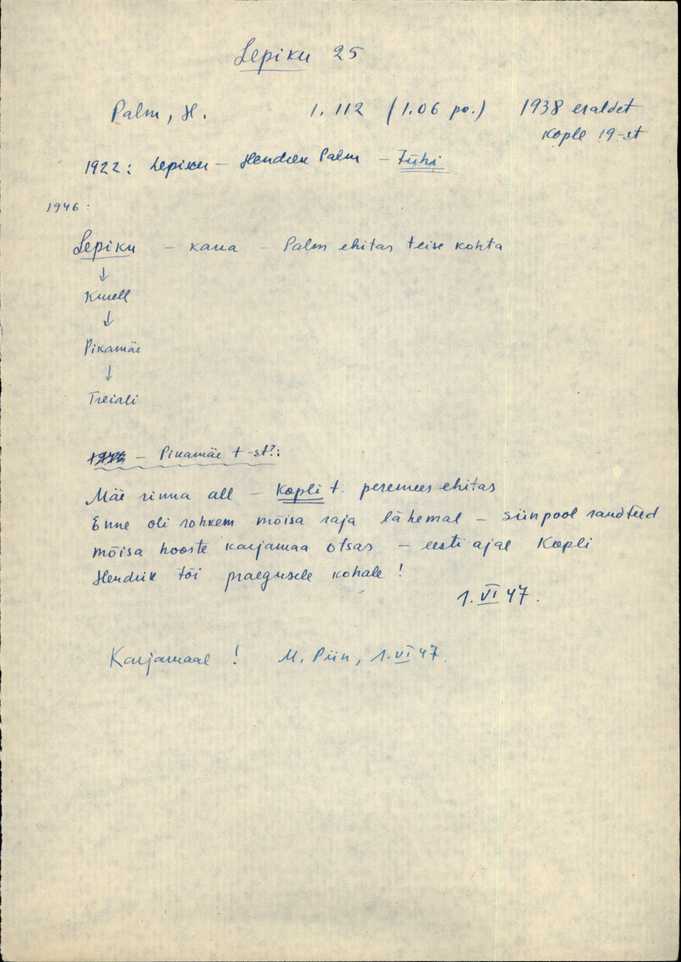 Lepiku 25
Palm, H. 1.112 (1.06 po.) 1938 eraldet
Kople 19-st
1922: Lepiku – Hendrek Palm – Tühi
1946.
Lepiku – kaua – Palm ehitas teise kohta
↓
Knell
↓
Pikamäe
↓
Treiali
– Pikamäe t-st?:
Mäe rinna all – Kopli t. peremees ehitas
Enne oli rohkem mõisa raja lähemal – siinpool randteed
mõisa hooste karjamaa otsas – eesti ajal Kopli
Hendrik tõi praegusele kohale!
1.VI 47.
Karjamaal! M. Piin, 1.VI 47.